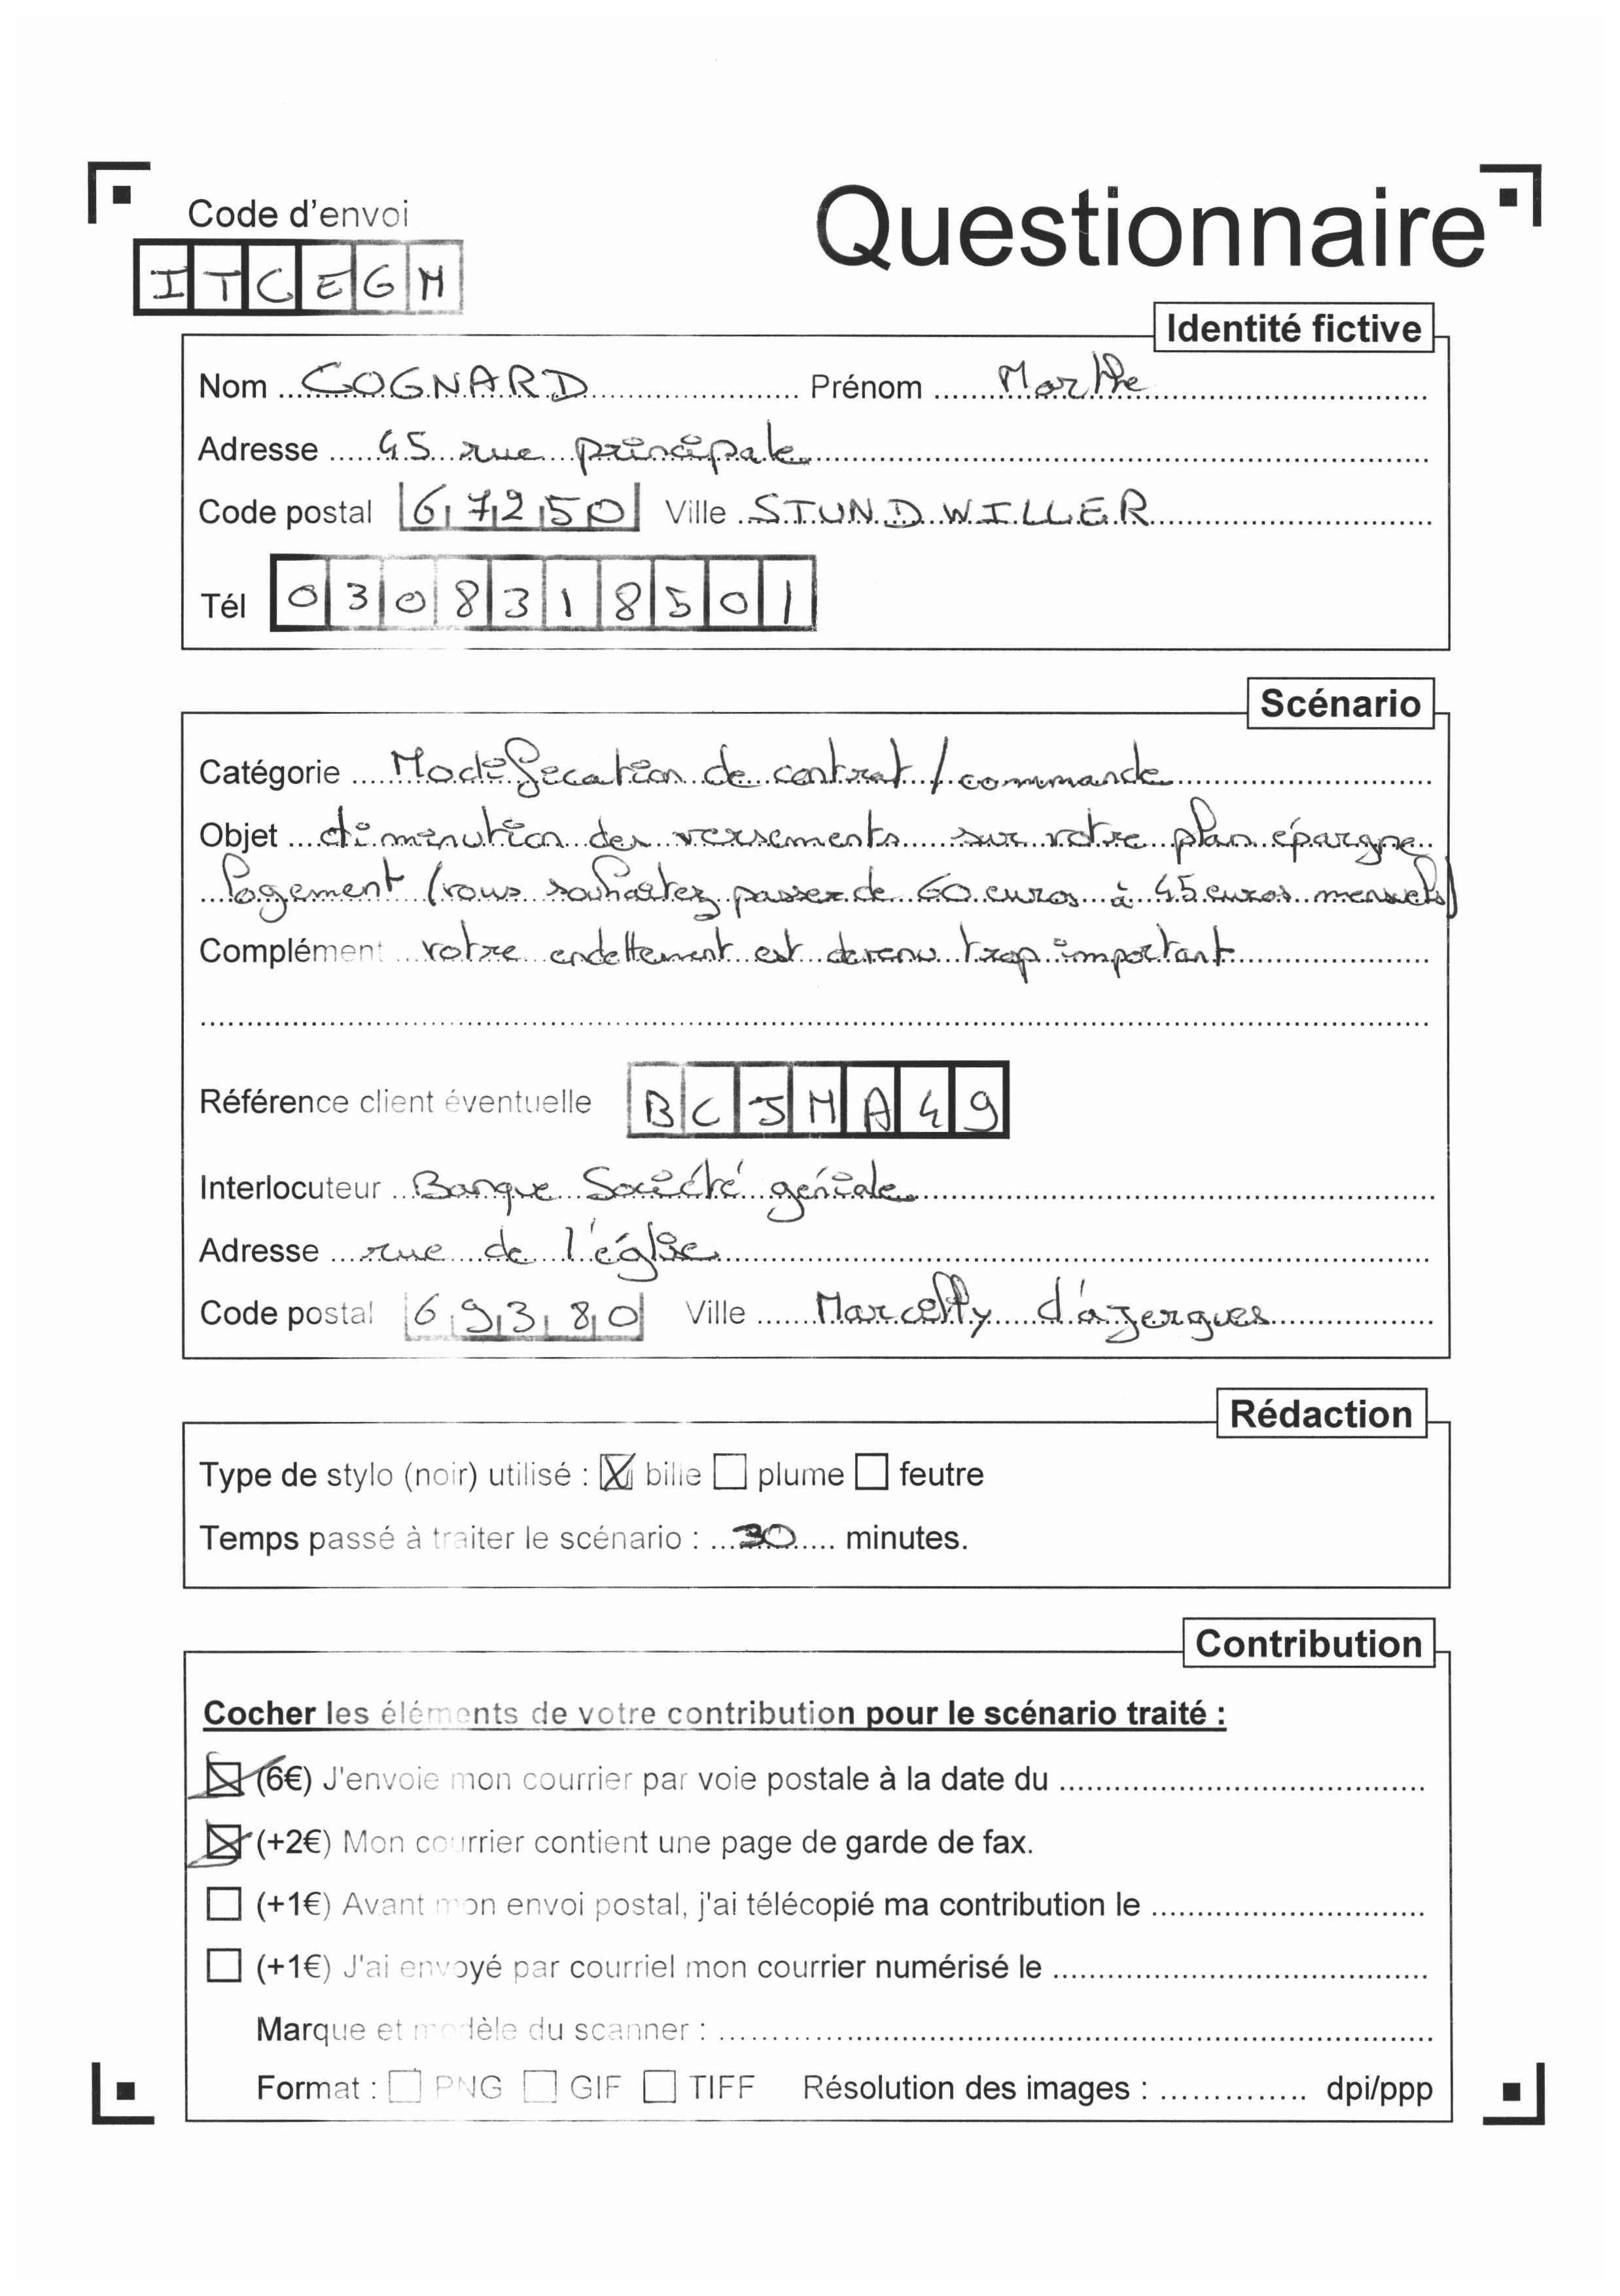 Code d'envoi
Questionnaire
ITCEGM
Identité fictive
Nom COGNARD Prénom Marthe
Adresse 45 rue principale
Code postal 67250 Ville STUNDWILLER
Tél 0308318501
Scénario
Catégorie Modification de contrat / commande
Objet diminution des versements sur votre plan épargne
logement (vous souhaitez passer de 60 euros à 45 euros mensuels)
Complément votre endettement est devenu trop important
Référence client éventuelle BCJMA49
Interlocuteur Banque Société géniale
Adresse rue de l'église
Code postal 69380 Ville Marcilly d'azergues
Rédaction
Type de stylo (noir) utilisé : bille plume feutre
Temps passé à traiter le scénario : 30 minutes.
Contribution
Cocher les éléments de votre contribution pour le scénario traité :
(6€) J'envoie mon courrier par voie postale à la date du
(+2€) Mon courrier contient une page de garde de fax.
(+1€) Avant mon envoi postal, j'ai télécopié ma contribution le
(+1€) J'ai envoyé par courriel mon courrier numérisé le
Marque et modèle du scanner :
Format : PNG GIF TIFF Résolution des images : dpi/ppp